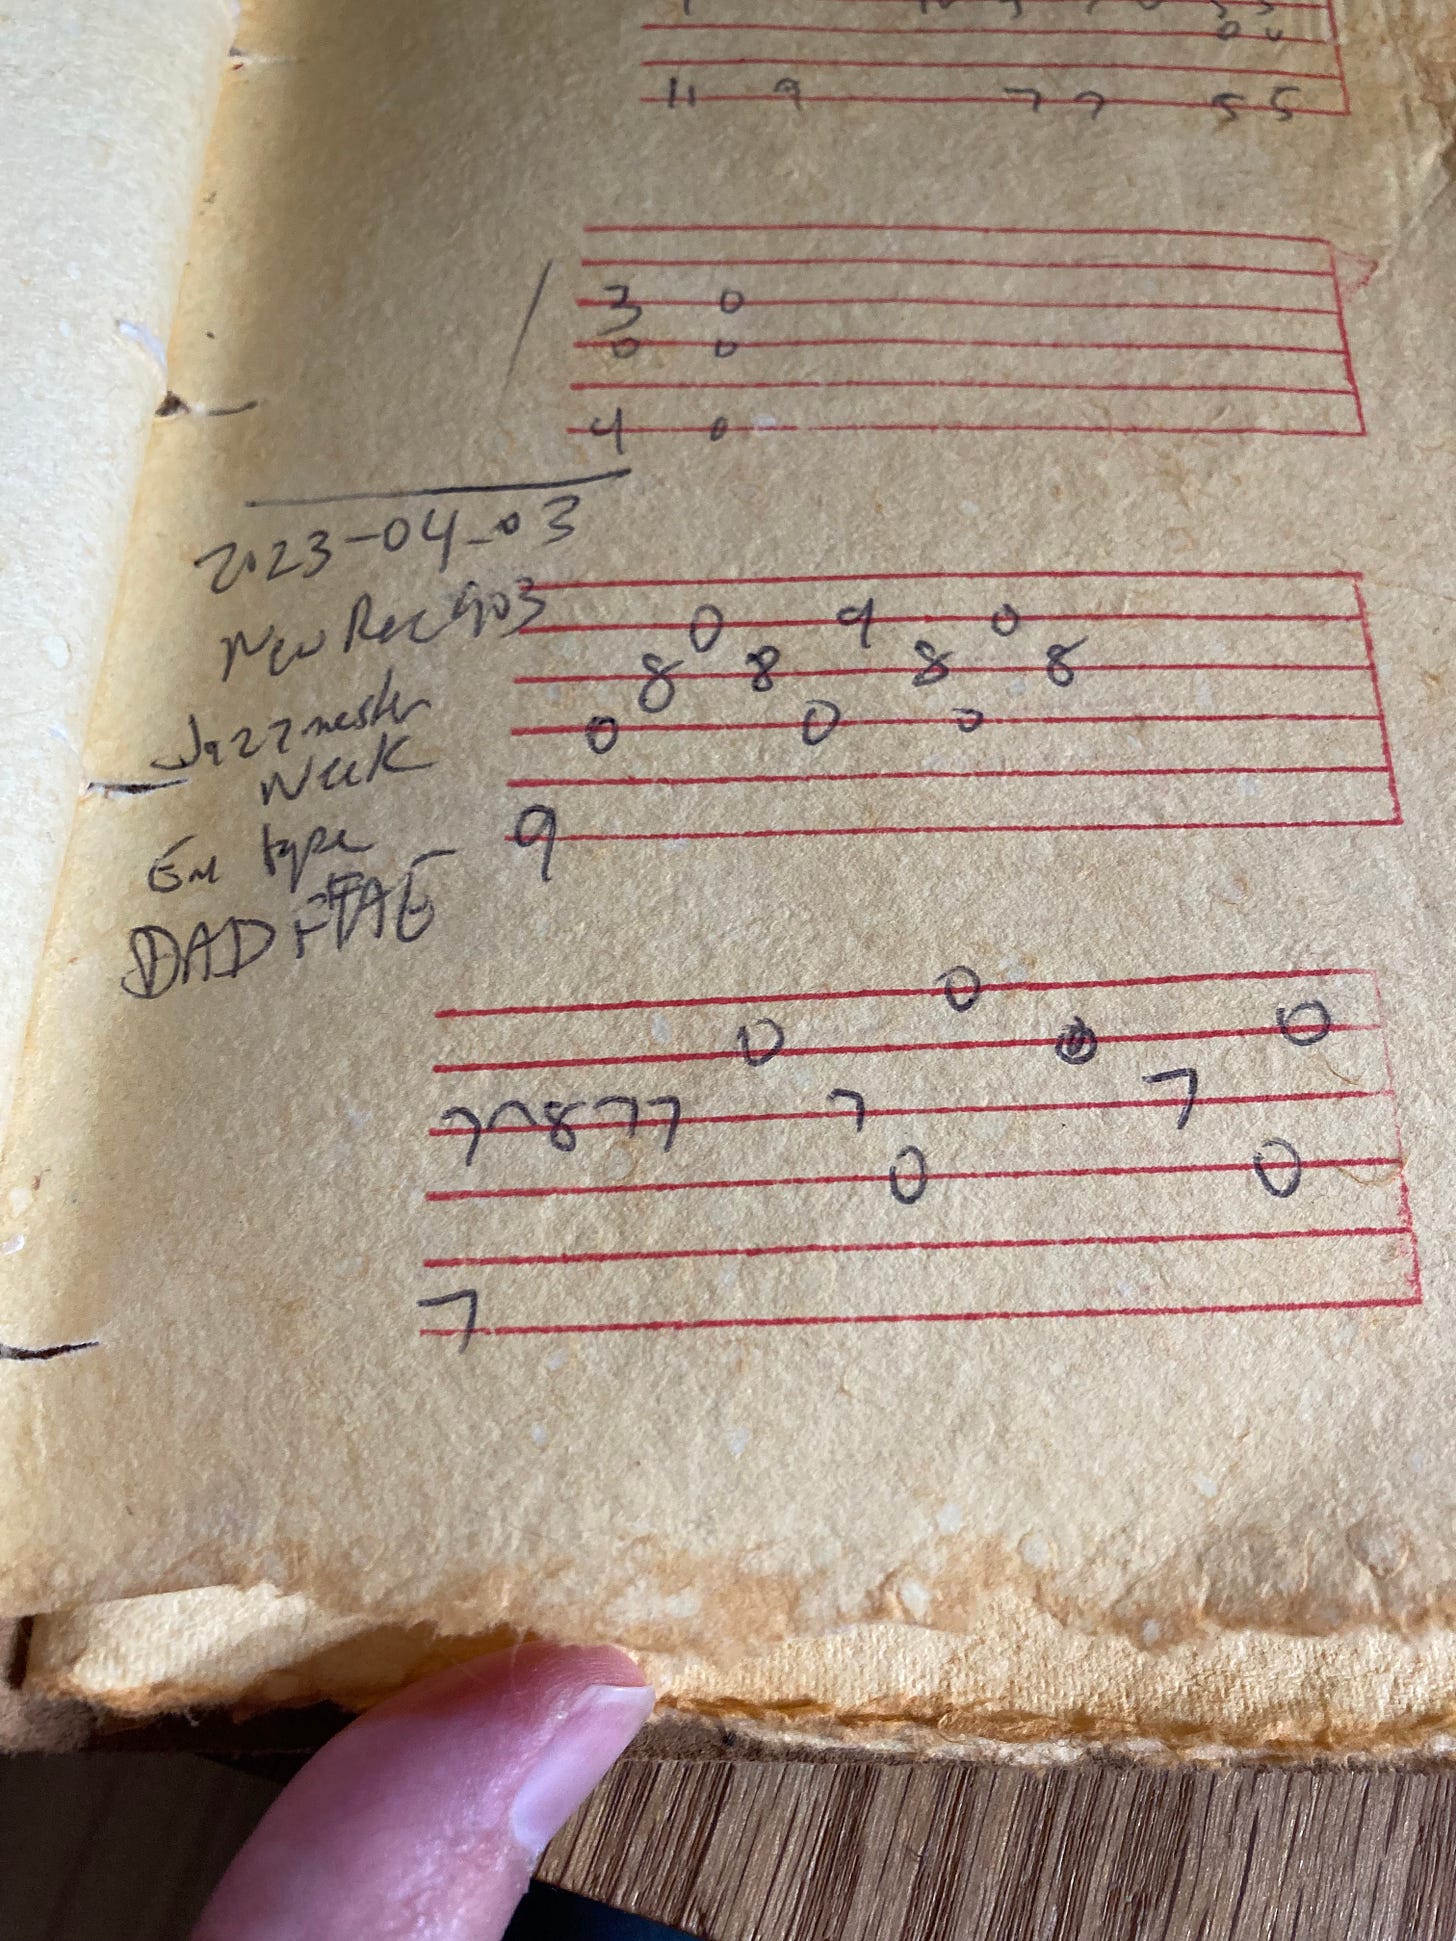 11 9 7 7 5 5
3 0
0 0
4 0
2023-04-03
New Rec 903
Jazzmaster
Neck
Em type
DADFAE
0 9 0
8 8 8 8
0 0 0
9
0
0 0 0
7 8 7 7 7 7
0 0
7